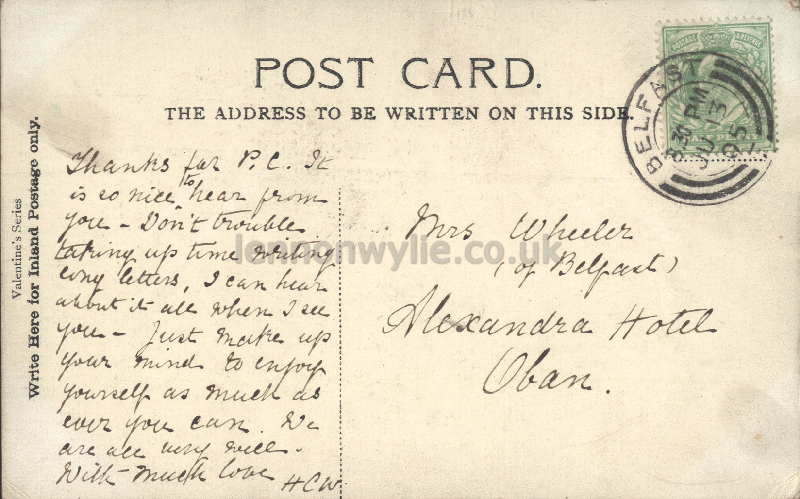 POST CARD.
THE ADDRESS TO BE WRITTEN ON THIS SIDE.
Valentine's Series
Write Here for Inland Postage only.
Thanks for P.C. It
is so nice to hear from
you – Don't trouble
taking up time writing
long letters, I can hear
about it all when I see
you – Just make up
your mind to enjoy
yourself as much as
ever you can. We
are all very well.
With much love HCW
Mrs Wheeler
(of Belfast)
Alexandra Hotel
Oban.
BELFAST
8.30 PM
JU 13
05
POSTAGE
lennonwylie.co.uk